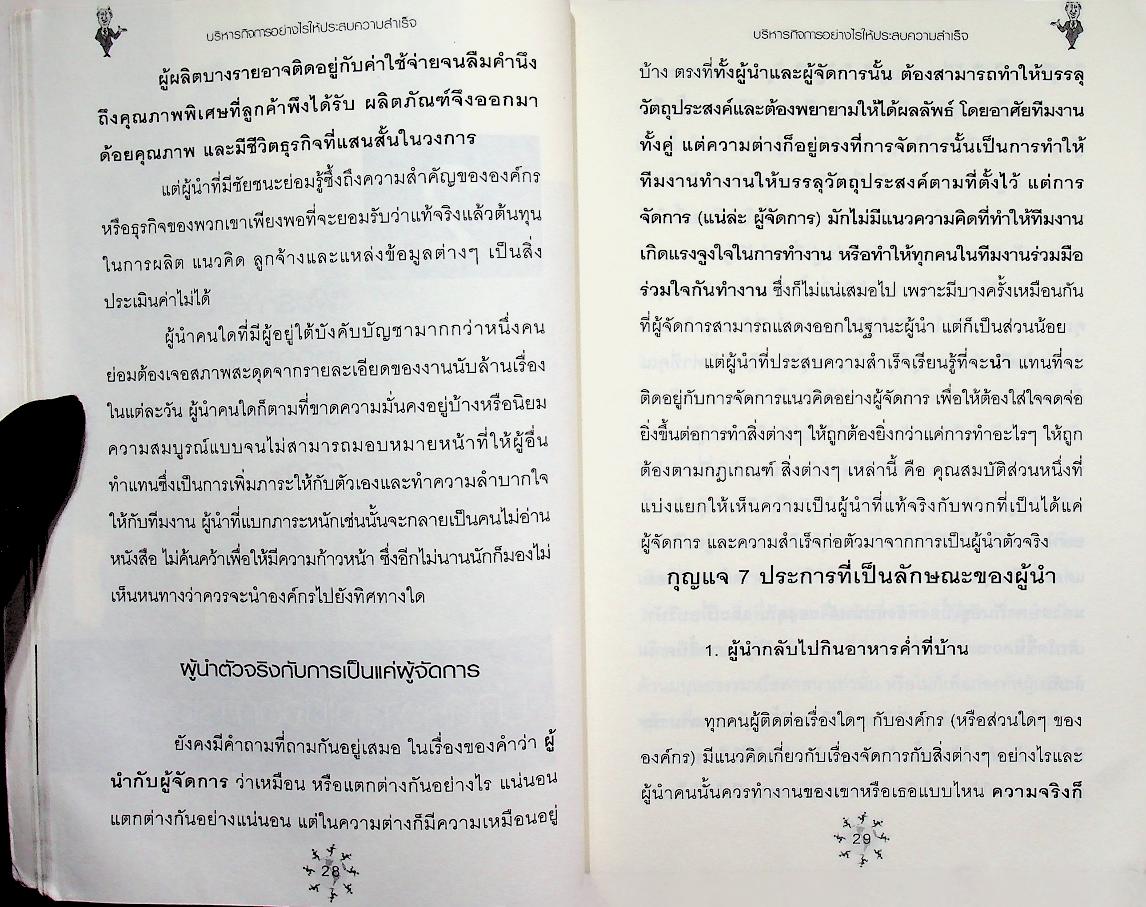 บริหารกิจการอย่างไรให้ประสบความสำเร็จ
ผู้ผลิตบางรายอาจติดอยู่กับค่าใช้จ่ายจนลืมคำนึง
ถึงคุณภาพพิเศษที่ลูกค้าพึงได้รับ ผลิตภัณฑ์จึงออกมา
ด้อยคุณภาพ และมีชีวิตธุรกิจที่แสนสั้นในวงการ
แต่ผู้นำที่มีชัยชนะย่อมรู้ซึ้งถึงความสำคัญขององค์กร
หรือธุรกิจของพวกเขาเพียงพอที่จะยอมรับว่าแท้จริงแล้วต้นทุน
ในการผลิต แนวคิด ลูกจ้างและแหล่งข้อมูลต่างๆ เป็นสิ่ง
ประเมินค่าไม่ได้
ผู้นำคนใดที่มีผู้อยู่ใต้บังคับบัญชามากกว่าหนึ่งคน
ย่อมต้องเจอสภาพสะดุดจากรายละเอียดของงานนับล้านเรื่อง
ในแต่ละวัน ผู้นำคนใดก็ตามที่ขาดความมั่นคงอยู่บ้างหรือนิยม
ความสมบูรณ์แบบจนไม่สามารถมอบหมายหน้าที่ให้ผู้อื่น
ทำแทนซึ่งเป็นการเพิ่มภาระให้กับตัวเองและทำความลำบากใจ
ให้กับทีมงาน ผู้นำที่แบกภาระหนักเช่นนั้นจะกลายเป็นคนไม่อ่าน
หนังสือ ไม่ค้นคว้าเพื่อให้มีความก้าวหน้า ซึ่งอีกไม่นานนักก็มองไม่
เห็นหนทางว่าควรจะนำองค์กรไปยังทิศทางใด
ผู้นำตัวจริงกับการเป็นแค่ผู้จัดการ
ยังคงมีคำถามที่ถามกันอยู่เสมอ ในเรื่องของคำว่า ผู้
นำกับผู้จัดการ ว่าเหมือน หรือแตกต่างกันอย่างไร แน่นอน
แตกต่างกันอย่างแน่นอน แต่ในความต่างก็มีความเหมือนอยู่
28
บริหารกิจการอย่างไรให้ประสบความสำเร็จ
บ้าง ตรงที่ทั้งผู้นำและผู้จัดการนั้น ต้องสามารถทำให้บรรลุ
วัตถุประสงค์และต้องพยายามให้ได้ผลลัพธ์ โดยอาศัยทีมงาน
ทั้งคู่ แต่ความต่างก็อยู่ตรงที่การจัดการนั้นเป็นการทำให้
ทีมงานทำงานให้บรรลุวัตถุประสงค์ตามที่ตั้งไว้ แต่การ
จัดการ (แน่ล่ะ ผู้จัดการ) มักไม่มีแนวความคิดที่ทำให้ทีมงาน
เกิดแรงจูงใจในการทำงาน หรือทำให้ทุกคนในทีมงานร่วมมือ
ร่วมใจกันทำงาน ซึ่งก็ไม่แน่เสมอไป เพราะมีบางครั้งเหมือนกัน
ที่ผู้จัดการสามารถแสดงออกในฐานะผู้นำ แต่ก็เป็นส่วนน้อย
แต่ผู้นำที่ประสบความสำเร็จเรียนรู้ที่จะนำ แทนที่จะ
ติดอยู่กับการจัดการแนวคิดอย่างผู้จัดการ เพื่อให้ต้องใส่ใจจดจ่อ
ยิ่งขึ้นต่อการทำสิ่งต่างๆ ให้ถูกต้องยิ่งกว่าแค่การทำอะไรๆ ให้ถูก
ต้องตามกฎเกณฑ์ สิ่งต่างๆ เหล่านี้ คือ คุณสมบัติส่วนหนึ่งที่
แบ่งแยกให้เห็นความเป็นผู้นำที่แท้จริงกับพวกที่เป็นได้แค่
ผู้จัดการ และความสำเร็จก่อตัวมาจากการเป็นผู้นำตัวจริง
กุญแจ 7 ประการที่เป็นลักษณะของผู้นำ
1. ผู้นำกลับไปกินอาหารค่ำที่บ้าน
ทุกคนผู้ติดต่อเรื่องใดๆ กับองค์กร (หรือส่วนใดๆ ของ
องค์กร) มีแนวคิดเกี่ยวกับเรื่องจัดการกับสิ่งต่างๆ อย่างไรและ
ผู้นำคนนั้นควรทำงานของเขาหรือเธอแบบไหน ความจริงก็
29